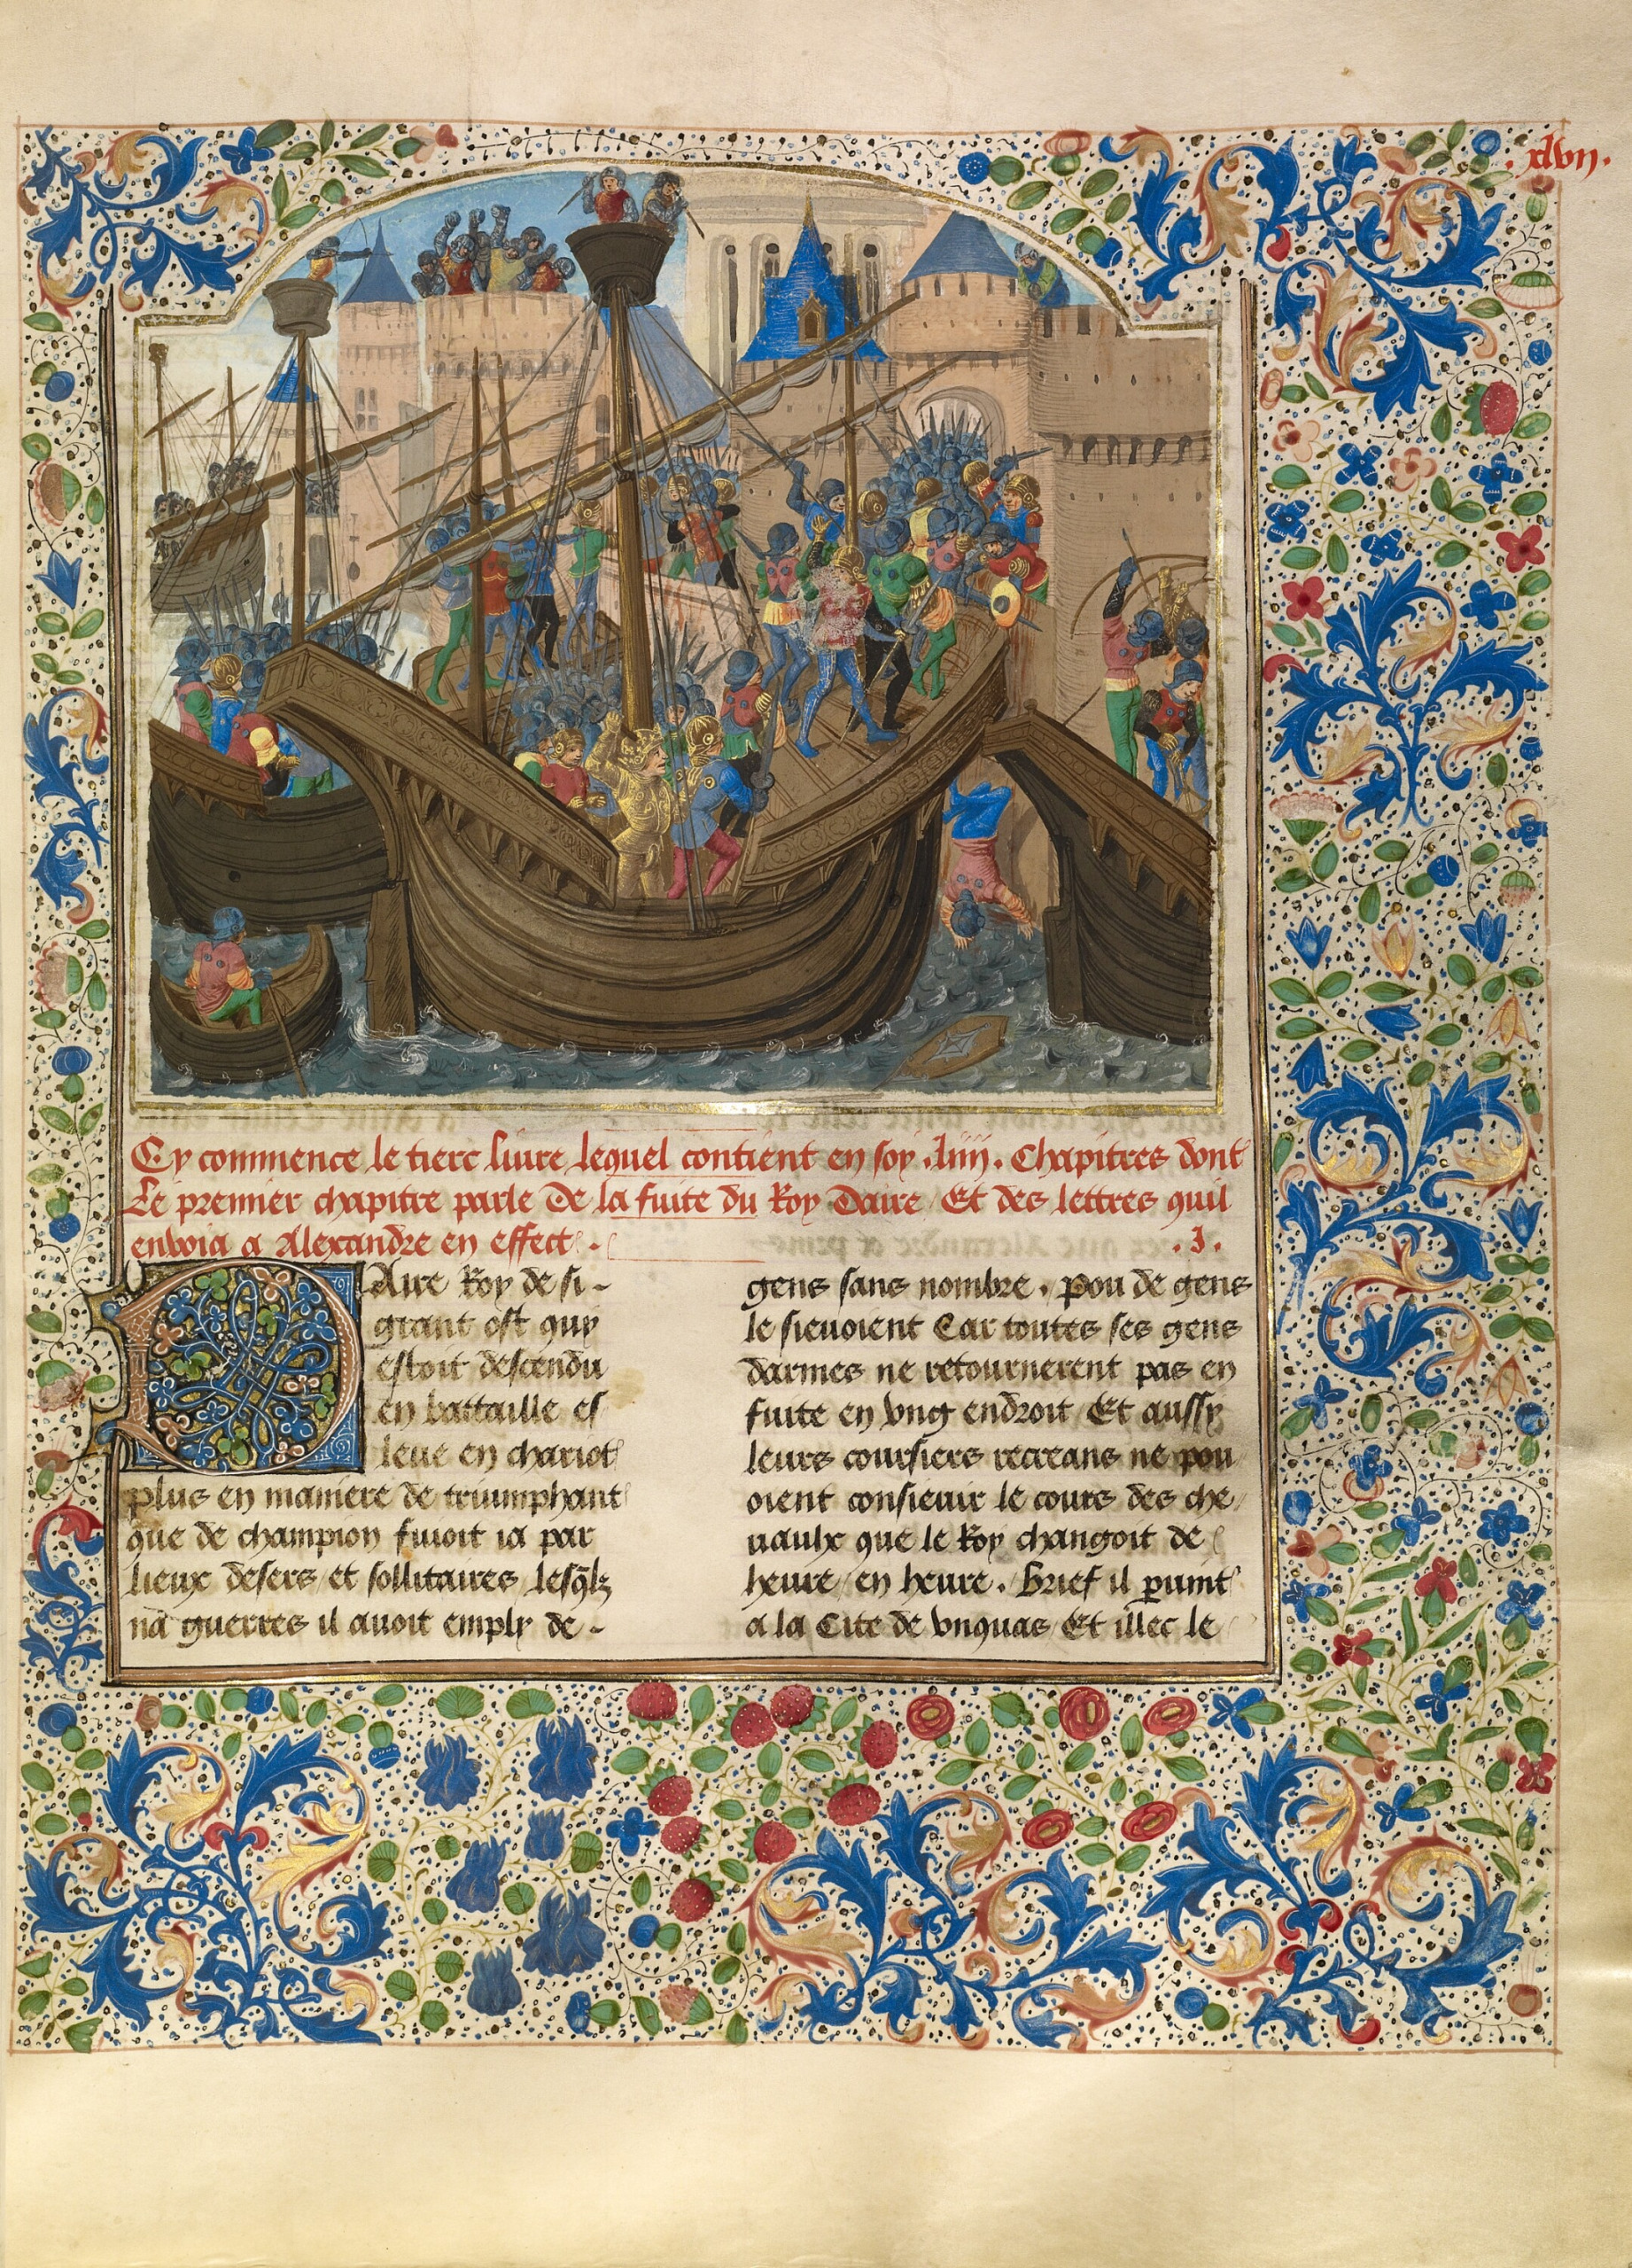 .xlvij.
Cy commence le tierc livre lequel contient en soy .liiij. Chapitres dont
Le premier chapitre parle De la fuite du Roy Daire Et des lettres quil
envoia a Alexandre en effect.
.J.
DAire Roy de si-
grant ost quy
estoit descendu
en battaille es
leue en chariot
plus en maniere de triumphant
que de champion fuioit ia par
lieux desers et sollitaires lesqlz
na guerres il auoit emply de-
gens sans nombre. pou de gens
le sieuoient Car toutes ses gens
darmes ne retournerent pas en
fuite en vng endroit Et aussy
leurs coursiers recreans ne pou
oient consieuir le cours des che
uaulx que le Roy changoit de
heure en heure. Brief il puint
a la Cite de vnquas Et illec le